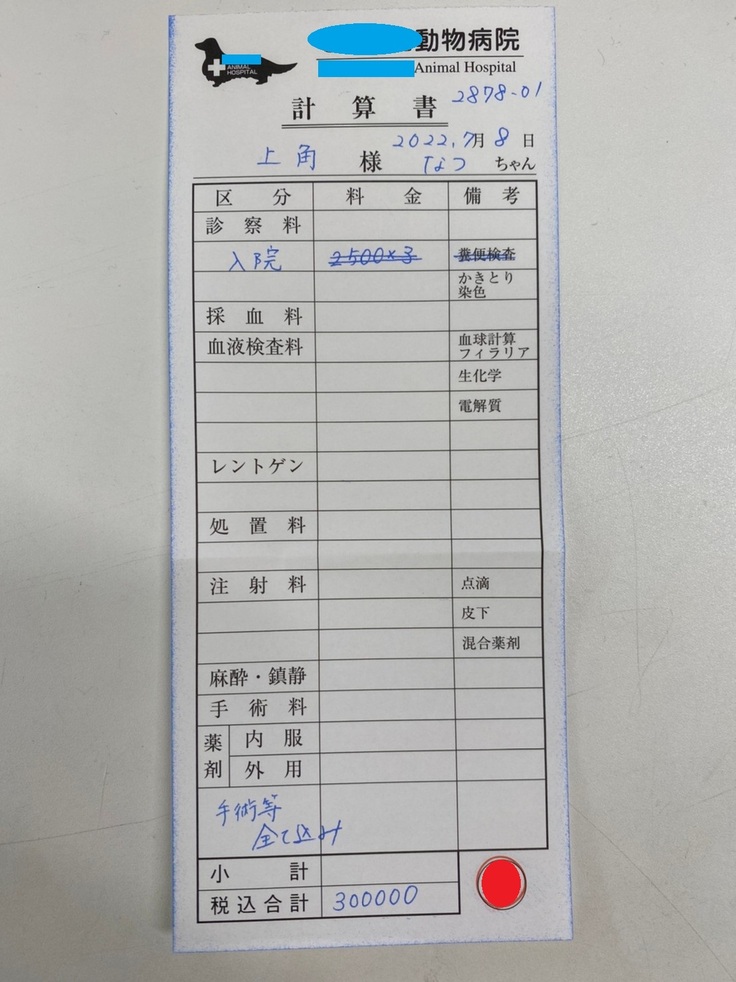 動物病院
ANIMAL HOSPITAL
Animal Hospital
計算書 2878-01
2022.7月8日
上角 様 なつ ちゃん
区分 料金 備考
診察料
入院 2500×3 糞便検査
かきとり
染色
採血料
血液検査料 血球計算
フィラリア
生化学
電解質
レントゲン
処置料
注射料 点滴
皮下
混合薬剤
麻酔・鎮静
手術料
薬剤 内服
外用
手術等
全て込み
小計
税込合計 300000